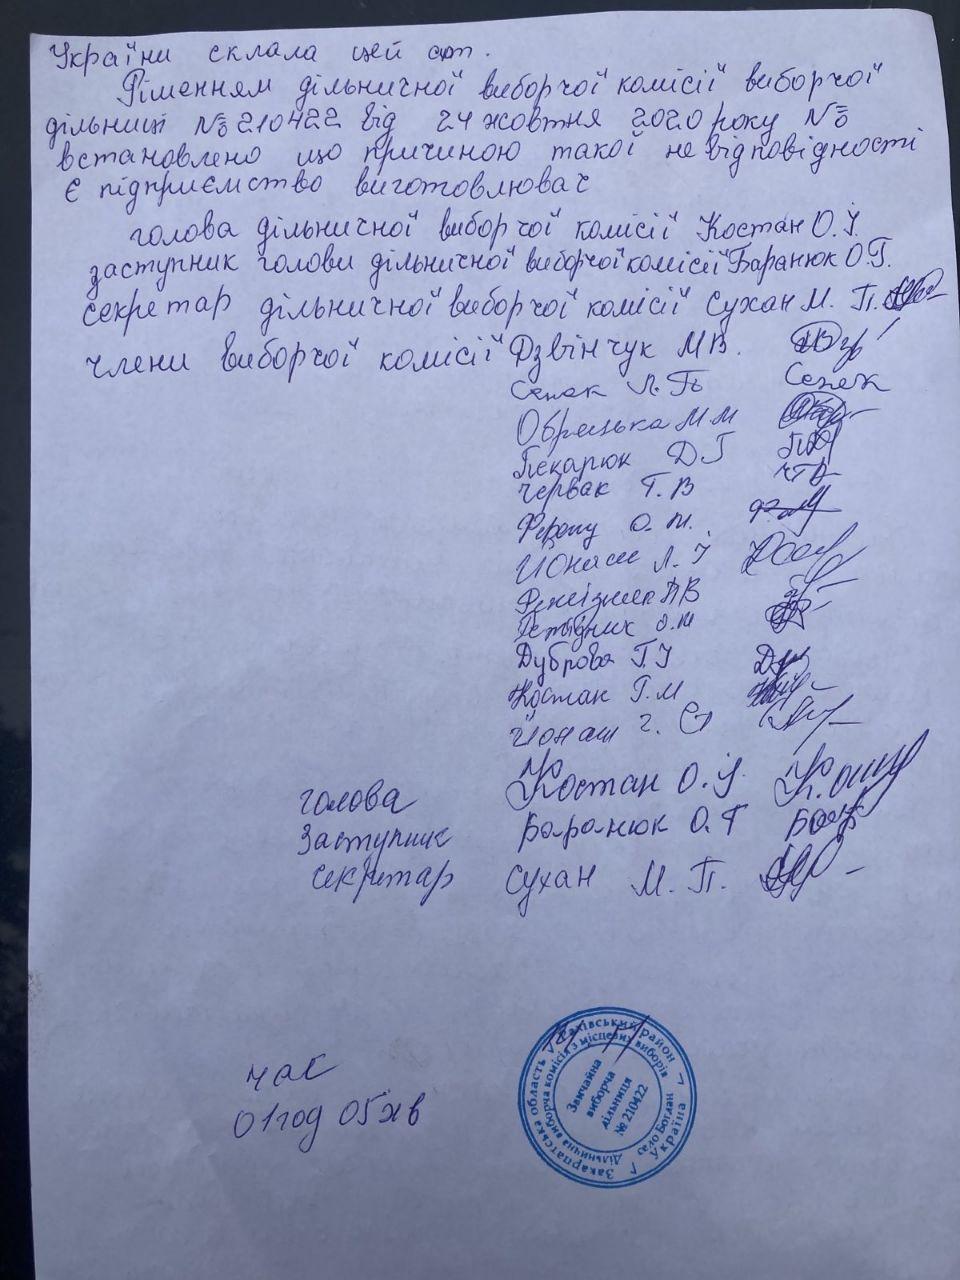 України склала цей акт.
Рішенням дільничної виборчої комісії виборчої
дільниці № 210422 від 24 жовтня 2020 року №
встановлено що причиною такої не відповідності
є підприємство виготовлювач
голова дільничної виборчої комісії Костан О. І.
заступник голови дільничної виборчої комісії Баранюк О Г.
секретар дільничної виборчої комісії Сухан М. П.
члени виборчої комісії Дзвінчук М В.
Сенек Л. Сенек
Обрецька М М
Пекарюк Д Г
Червак Г. В
О. М.
Йонаш Л. І
В
О. М
Дуброва Г. І
Костак Г. М
Йонаш
голова Костан О. І.
Заступник Баранюк О. Г
секретар Сухан М. П.
час
01 год 05 хв
Закарпатська область Рахівський район
Дільнична виборча комісія з місцевих виборів
Звичайна
виборча
дільниця
№ 210422
село Богдан
Україна